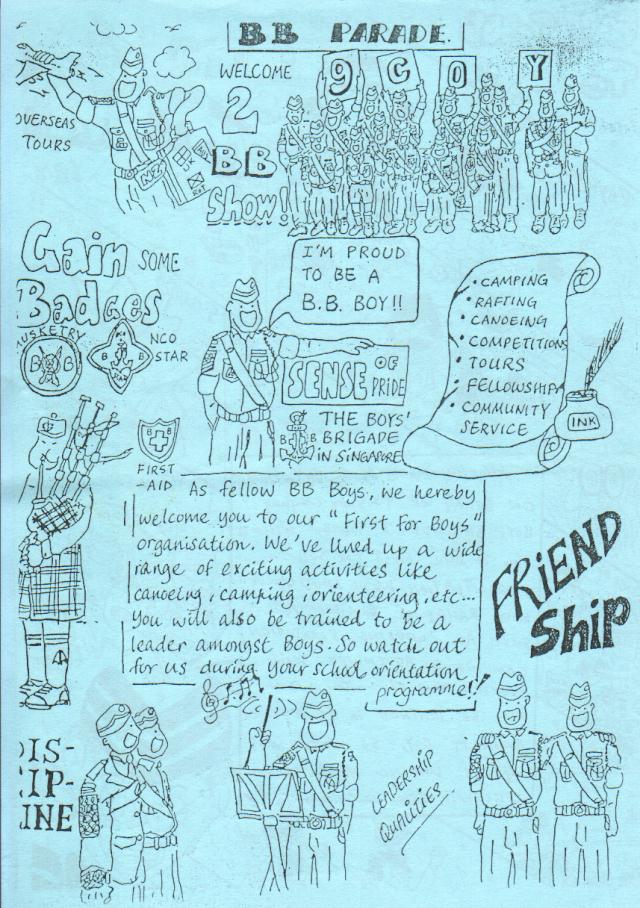 BB PARADE
OVERSEAS
TOURS
WELCOME
2
BB
Show!
9 C O Y
Gain SOME
Badges
MUSKETRY
B B
NCO
STAR
B B
I'M PROUD
TO BE A
B.B. BOY!!
SENSE OF
PRIDE
B B
THE BOYS'
BRIGADE
IN SINGAPORE
• CAMPING
• RAFTING
• CANOEING
• COMPETITIONS
• TOURS
• FELLOWSHIP
• COMMUNITY
SERVICE
INK
B B
FIRST
-AID
As fellow BB Boys, we hereby
welcome you to our "First for Boys"
organisation. We've lined up a wide
range of exciting activities like
canoeing, camping, orienteering, etc...
You will also be trained to be a
leader amongst Boys. So watch out
for us during your school orientation
programme!!
FRiEND
Ship
DIS-
CIP-
LINE
LEADERSHIP
QUALITIES.